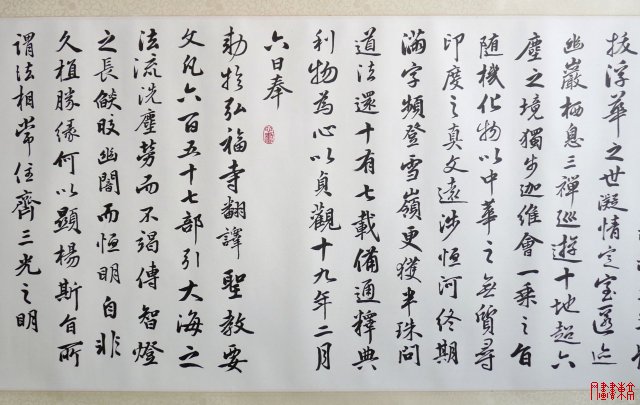 拔浮華之世凝情定室匿迹
幽巖栖息三禪巡遊十地超六
塵之境獨步迦維會一乘之旨
随機化物以中華之無質尋
印度之真文遠涉恒河終期
滿字頻登雪嶺更獲半珠問
道法還十有七載備通釋典
利物為心以貞觀十九年二月
六日奉
勅於弘福寺翻譯聖教要
文凡六百五十七部引大海之
法流洗塵勞而不竭傳智燈
之長燄皎幽闇而恒明自非
久植勝緣何以顯楊斯旨所
謂法相常住齊三光之明